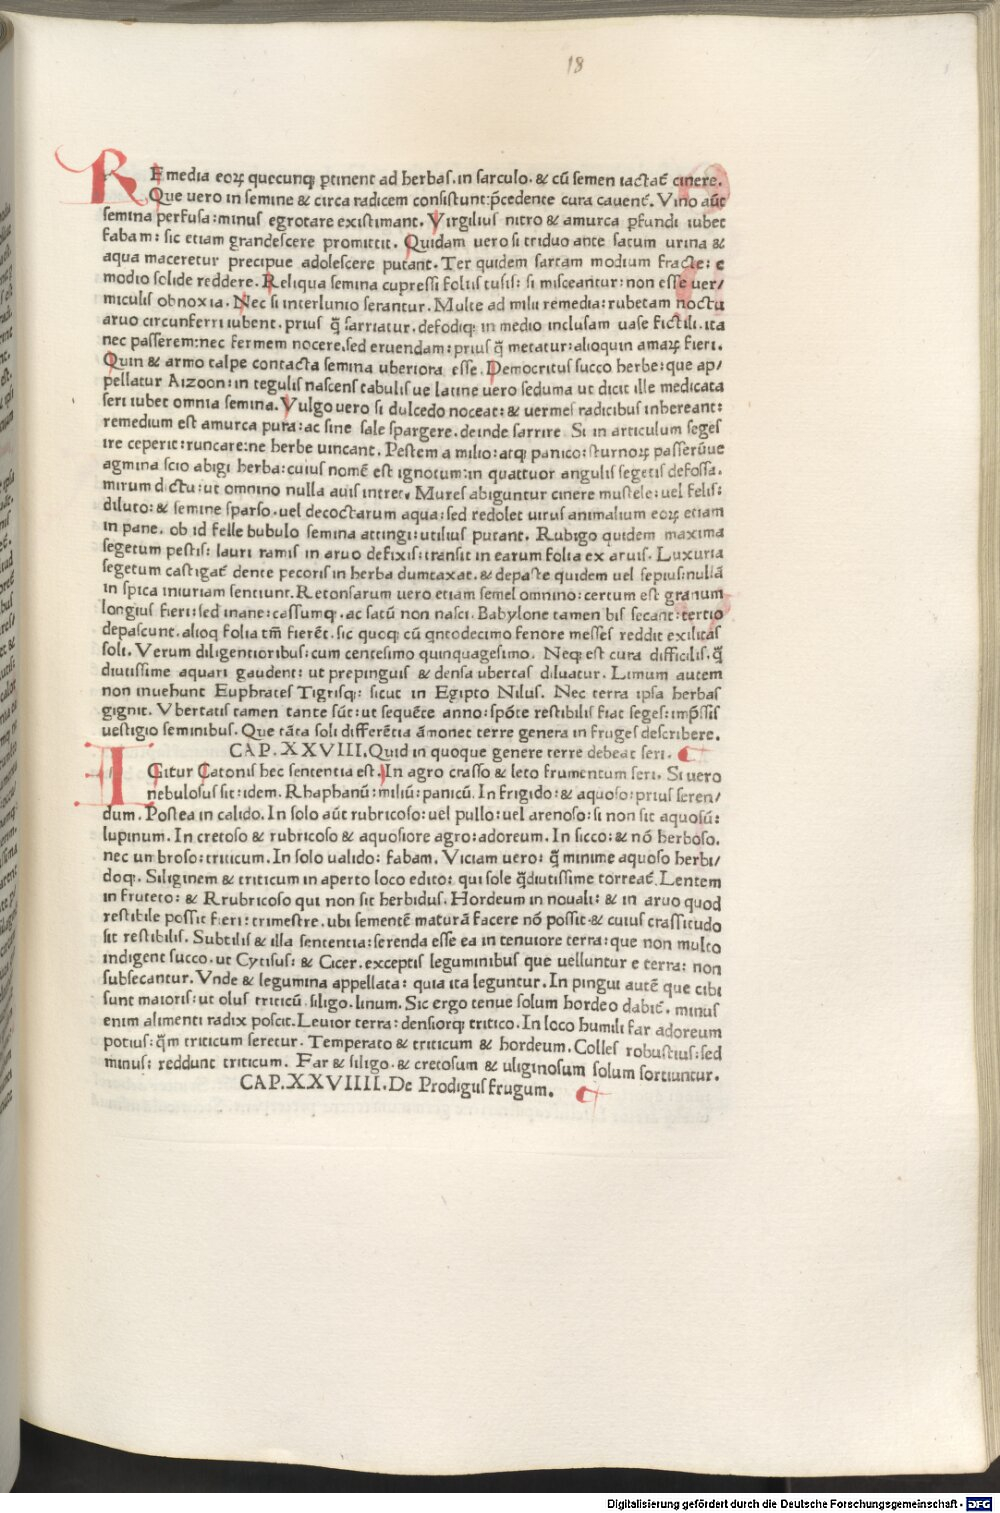 18
REmedia eoꝝ quecunqꝫ ꝑtinent ad herbas. in sarculo. & cū semen iactat̄ cinere.
Que uero in semine & circa radicem consistunt: p̄cedente cura cauent̄. Vino aūt
semina perfusa: minus egrotare existimant. Virgilius nitro & amurca ꝑfundi iubet
fabam: sic etiam grandescere promittit. Quidam uero si triduo ante satum urina &
aqua maceretur precipue adolescere putant. Ter quidem sartam modium fracte: e
modio solide reddere. Reliqua semina cupressi foliis tusis: si misceantur: non esse uer/
miculis obnoxia. Nec si interlunio serantur. Multe ad milii remedia: rubetam noctu
aruo circunferri iubent. prius q̄ sarriatur. defodiqꝫ in medio inclusam uase fictili. ita
nec passerem: nec fermem nocere. sed eruendam: prius q̄ metatur: alioquin amaꝝ fieri.
Quin & armo talpe contacta semina uberiora esse. Democritus succo herbe: que ap/
pellatur Aizoon: in tegulis nascens tabulis ue latine uero seduma ut dicit ille medicata
seri iubet omnia semina. Vulgo uero si dulcedo noceat: & uermes radicibus inhereant:
remedium est amurca pura: ac sine sale spargere. deinde sarrire Si in articulum seges
ire ceperit: runcare: ne herbe uincant. Pestem a milio: atqꝫ panico: sturnoꝝ passerūue
agmina scio abigi herba: cuius nomē est ignotum: in quattuor angulis segetis defossa.
mirum dictu: ut omnino nulla auis intret. Mures abiguntur cinere mustele: uel felis:
diluto: & semine sparso. uel decoctarum aqua: sed redolet uirus animalium eoꝝ etiam
in pane. ob id felle bubulo semina attingi: utilius putant. Rubigo quidem maxima
segetum pestis: lauri ramis in aruo defixis: transit in earum folia ex aruis. Luxuria
segetum castigat̄ dente pecoris in herba dumtaxat. & depaste quidem uel sepius: nullā
in spica iniuriam sentiunt. Retonsarum uero etiam semel omnino: certum est granum
longius fieri: sed inane: cassumqꝫ. ac satū non nasci. Babylone tamen bis secant: tertio
depascunt. alioq̄ folia tm̄ fierēt. sic quoqꝫ cū q̄ntodecimo fenore messes reddit exilitas
soli. Verum diligentioribus: cum centesimo quinquagesimo. Neqꝫ est cura difficilis. q̄
diutissime aquari gaudent: ut prepinguis & densa ubertas diluatur. Limum autem
non inuehunt Euphrates Tigrisqꝫ: sicut in Egipto Nilus. Nec terra ipsa herbas
gignit. Vbertatis tamen tante sūt: ut sequēte anno: spōte restibilis fiat seges: imp̄ssis
uestigio seminibus. Que tāta soli differētia āmonet terre genera in fruges describere.
CAP. XXVIII. Quid in quoque genere terre debeat seri.
IGitur Catonis hec sententia est. In agro crasso & leto frumentum seri. Si uero
nebulosus sit: idem. Rhaphanū: miliū: panicū. In frigido: & aquoso: prius seren/
dum. Postea in calido. In solo aūt rubricoso: uel pullo: uel arenoso: si non sit aquosū:
lupinum. In cretoso & rubricoso & aquosiore agro: adoreum. In sicco: & nō herboso.
nec umbroso: triticum. In solo ualido: fabam. Viciam uero: q̄ minime aquoso herbi/
doqꝫ. Siliginem & triticum in aperto loco edito: qui sole q̄diutissime torreat̄. Lentem
in fruteto: & Rrubricoso qui non sit herbidus. Hordeum in nouali: & in aruo quod
restibile possit fieri: trimestre. ubi sementē maturā facere nō possit & cuius crassitudo
sit restibilis. Subtilis & illa sententia: serenda esse ea in tenuiore terra: que non multo
indigent succo. ut Cytisus: & Cicer. exceptis leguminibus que uelluntur e terra: non
subsecantur. Vnde & legumina appellata: quia ita leguntur. In pingui autē que cibi
sunt maioris: ut olus triticū. siligo. linum. Sic ergo tenue solum hordeo dabit̄. minus
enim alimenti radix poscit. Leuior terra: densiorqꝫ tritico. In loco humili far adoreum
potius: q̄m triticum seretur. Temperato & triticum & hordeum. Colles robustius: sed
minus: reddunt triticum. Far & siligo. & cretosum & uliginosum solum sortiuntur.
CAP. XXVIIII. De Prodigus frugum.
Digitalisierung gefördert durch die Deutsche Forschungsgemeinschaft - DFG